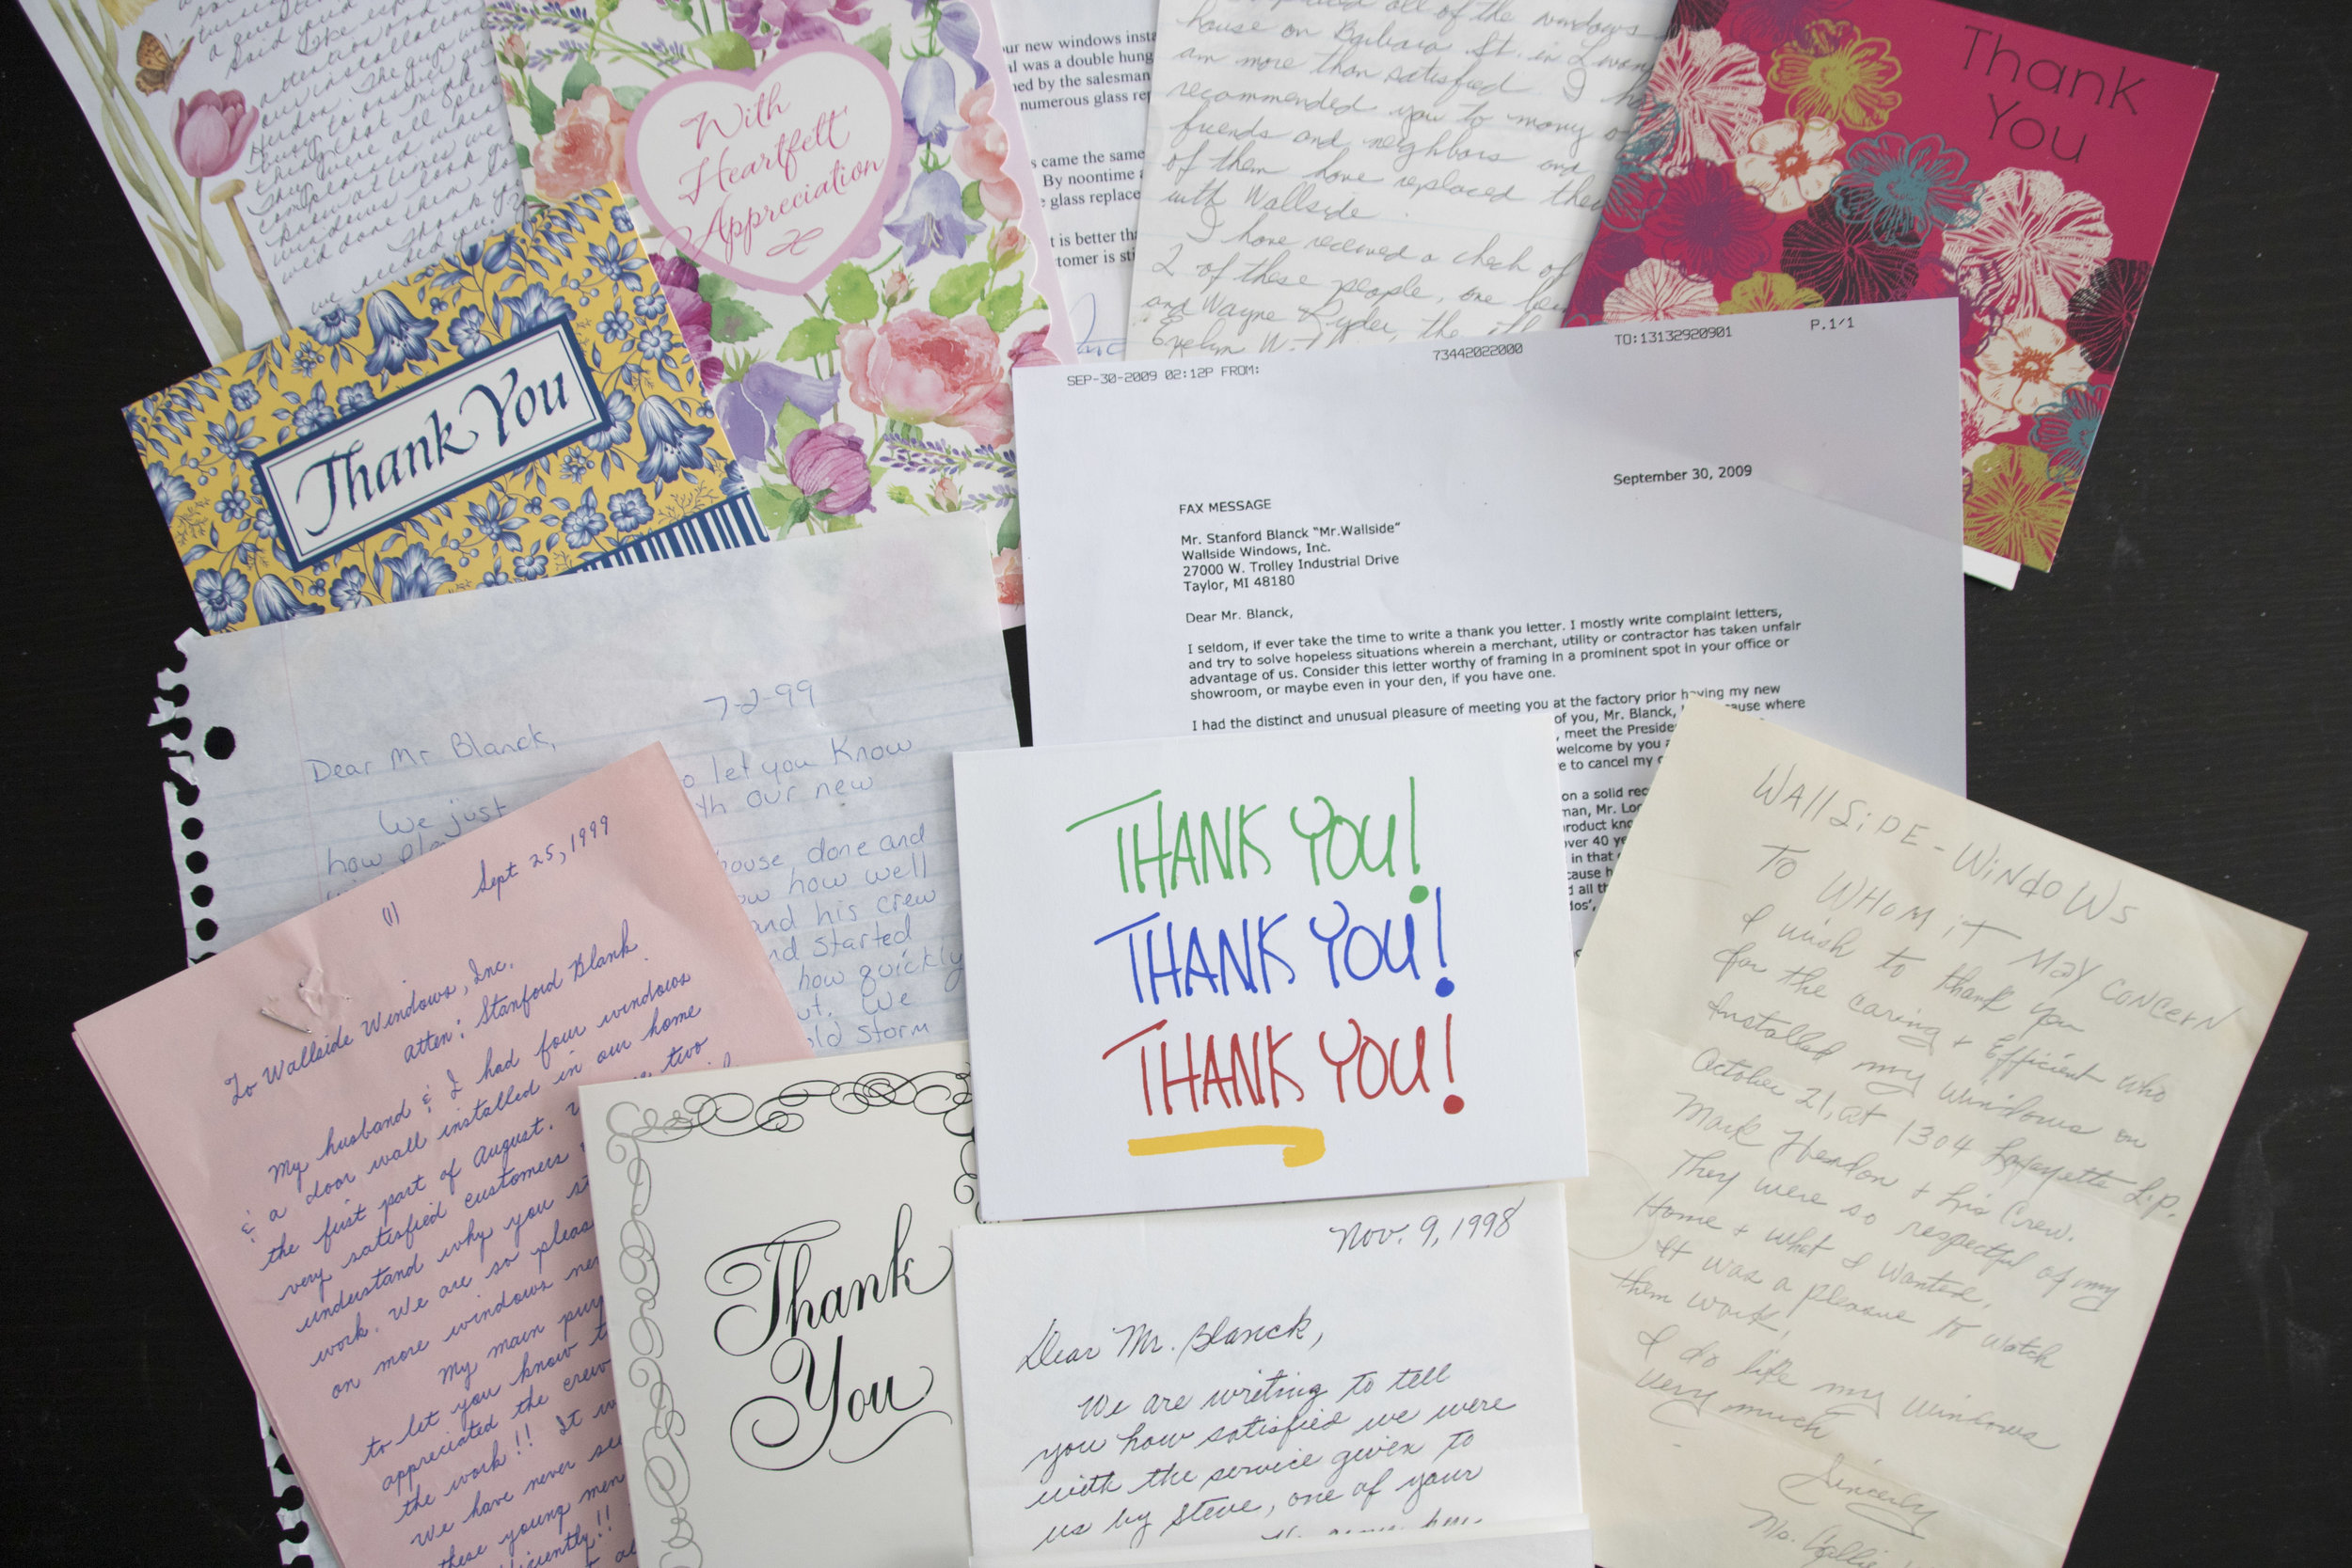 a question
said you'd
attention and
our installation
Herdon. The guys w
busy to answer qu
thing that might
They were all plea
complained when
how at times we
windows look gr
well done them so
Thank you
we needed your
With
Heartfelt
Appreciation
ur new windows insta
l was a double hung
ned by the salesman
numerous glass rep
s came the same
By noontime a
e glass replace
t is better tha
tomer is sti
all of the windows
house on Barbara St. in Livon
am more than satisfied. I ha
recommended you to many o
friends and neighbors and
of them have replaced thei
with Wallside.
I have received a check of
2 of these people, one bein
and Wayne Ryder, the oth
Evelyn W.
Thank
You
Thank You
SEP-30-2009 02:12P FROM:
73442022000
TO:13132920901
P.1/1
September 30, 2009
FAX MESSAGE
Mr. Stanford Blanck "Mr.Wallside"
Wallside Windows, Inc.
27000 W. Trolley Industrial Drive
Taylor, MI 48180
Dear Mr. Blanck,
I seldom, if ever take the time to write a thank you letter. I mostly write complaint letters,
and try to solve hopeless situations wherein a merchant, utility or contractor has taken unfair
advantage of us. Consider this letter worthy of framing in a prominent spot in your office or
showroom, or maybe even in your den, if you have one.
I had the distinct and unusual pleasure of meeting you at the factory prior having my new
of you, Mr. Blanck, ause where
, meet the Preside
welcome by you a
e to cancel my c
on a solid rec
man, Mr. Lo
roduct kno
ver 40 ye
in that
cause h
d all th
dos',
7-2-99
Dear Mr Blanck,
We just o let you know
how pl th our new
ouse done and
ow how well
and his crew
nd started
how quickly
ut. We
old storm
(1)
Sept 25, 1999
To Wallside Windows, Inc.
Atten: Stanford Blank.
My husband & I had four windows
& a door wall installed in our home
the first part of August. two
very satisfied customers
understand why you st
work. We are so pleas
on more windows nex
My main pur
to let you know t
appreciated the crew
the work!! It w
We have never see
these young men
iciently!!
THANK YOU!
THANK YOU!
THANK YOU!
Thank
You
Nov. 9, 1998
Dear Mr. Blanck,
We are writing to tell
you how satisfied we were
with the service given to
us by Steve, one of your
WAllSiDE-WiNdoWs
To WHoM iT MAy CoNCerN
I wish to thank you
for the caring & Efficient who
Installed my windows on
October 21, at 1304 Lafayette L.P.
Mark Herdon & his Crew.
They were so respectful of my
Home & what I wanted.
It was a pleasue to watch
them work!
I do like my windows
very much
Sincerly
Ms. Callie